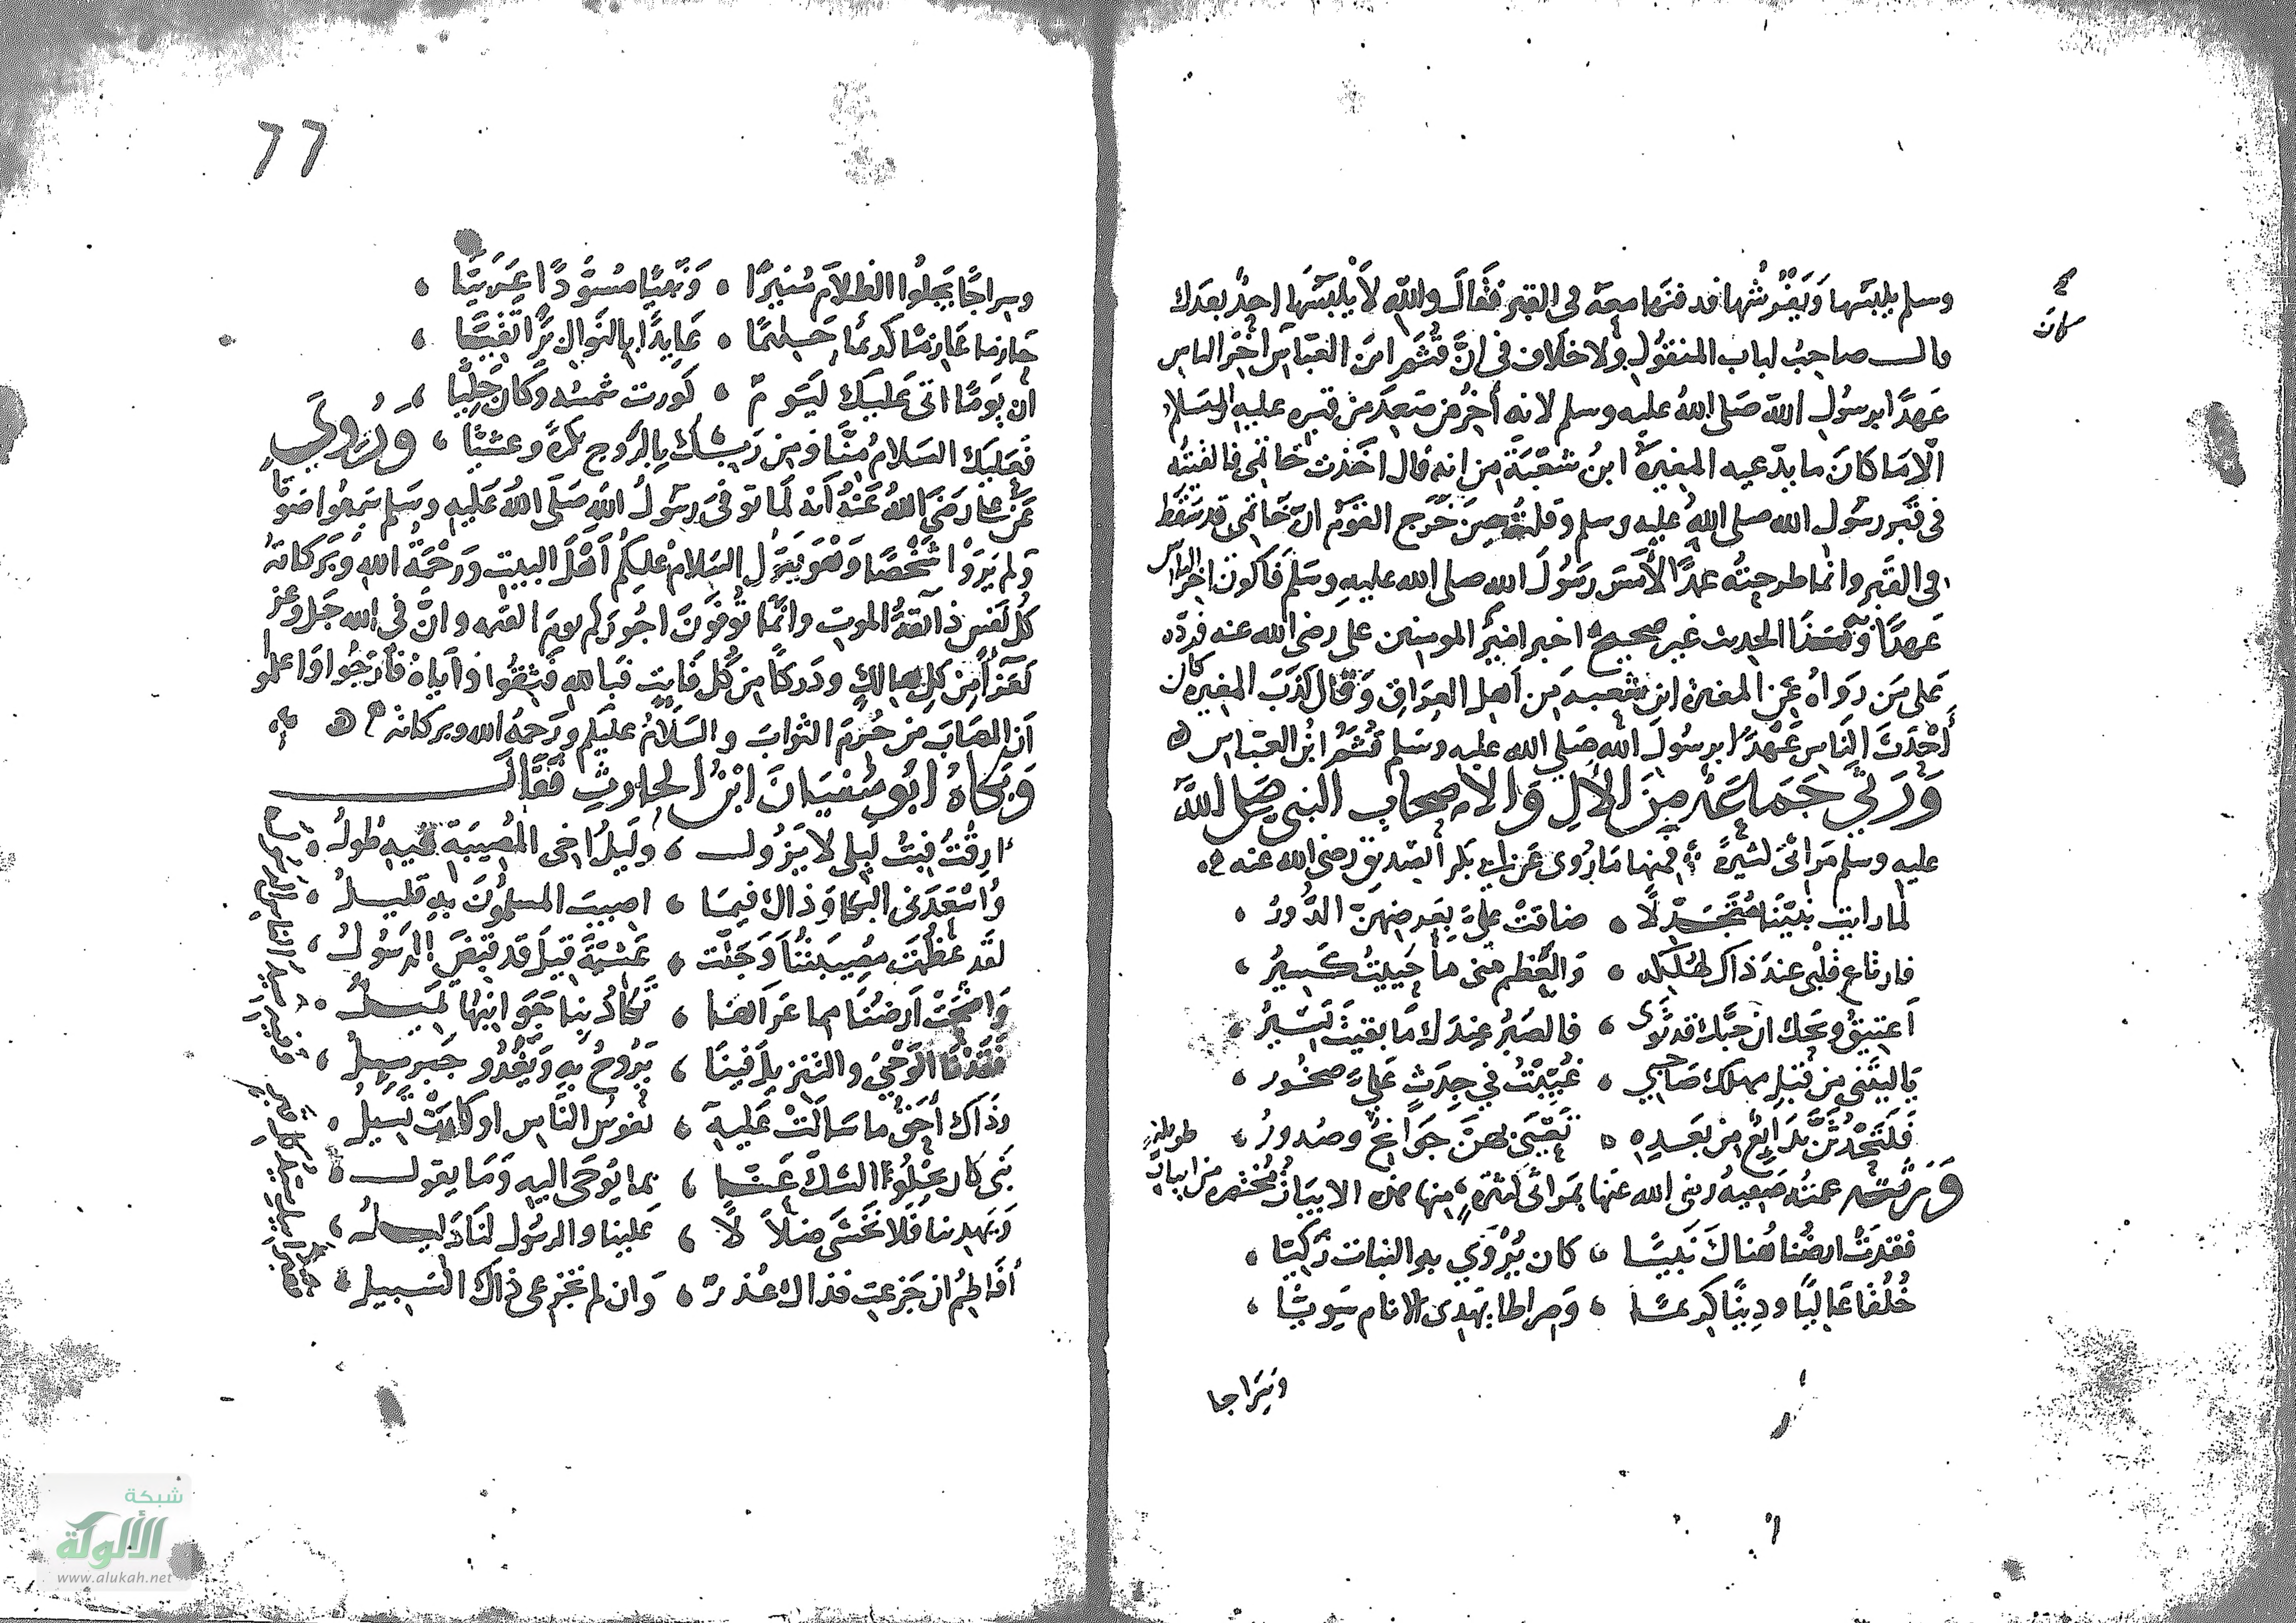 وسلم يلبسها وَيَفْرُشُها فدفنها معه في القبر فَقَالَ واللهِ لاَ يْلبَسُهَا احدٌ بعدك
كان
قال صاحبُ لباب المنقول ولا خلاف في انَّ قُثَم ابن العَبّاس اخْر الناس
عَهدًا برسُول الله صَلى اللهُ عليه وسلم لانه أخِرُ من صَعِدَ من قبره عليه السّلام
الّا مَا كانَ ما يدّعيه المغيرَةُ ابنُ شعْبَة من انه قال اخَذت خَاتمى فالقيتُه
فى قَبر رسُول الله صلى الله عليه وسلم وقلتُ حِينَ خَرَج القوْم انّ خَاتمى قد سَقَط
فى القبر وانما طرحتُه عمدًا لأمَسّ رَسُولَ الله صلى الله عليهِ وسَلم فَاكونَ اخرَ الناس
عَهدًا وَهَذا الحديث غير صحيح اخبر اميرُ المومنين على رضى الله عنه فردّه
عَلى مَن رَواهُ عَن المغيرة ابن شعبه مِن اَهل العِراق وَقال كذَبَ المغيره كان
أَحْدَثَ النَاس عَهْدًا برسُولَ الله صَلى الله عليه وسَلم قُثَمُ ابْنُ العبّاس ه
وَرَثى جَماعَة مِنَ الأل وَالاصحاب النبى صَلى اللهُ
عليه وسلم مَراثىَ كثيرَةً فمنها مَا رُوى عَن ابى بَكر الصّديق رضى الله عنه
لما رايت نبيّنا مُتَجَدّلًا ، ضاقتْ عليَّ بِعَرضهنّ الدُّورُ ،
فارتاع قلبى عندَ ذاكَ لهُلكِه ، وَالعَظم منى ما حَييتُ كَسِيرُ ،
أعتيقُ ويحك ان حِبَّكَ قد ثوَى ، فالصَبْرُ عِندَك مَا بقيتَ يَسِيرُ ،
يَا ليتَنى من قبْل مهلك صَاحِبي ، غُيّبْتُ في جَدَثٍ عَليَّ صخُور ،
فَلَتَحْدُثَنَّ بَدَايعٌ من بَعدِهِ ، تَعْيَى بهنَّ جَوَانِحٌ وصُدورُ ،
وَرثته عمتُه صَفيهُ رضى الله عنها بمَراثى كثيرَةٍ منها هذه الابيَاتُ مُختصره من ابيات طويلةٍ
فقدَتْ ارضُنا هُناكَ نَبِيًّا ، كان يُرْوَى به النبات زَكِيّا ،
خُلُقًا عَاليًا ودِينًا كريمًا ، وَصراطا يَهدى الانام سَوِيًّا ،
وَسِرَاجا
٦٦
وسِراجًا يَجلُوا الظلاَم مُنيرًا ، وَنَبيًّا مُسَوَّدًا عَرَبيّا ،
حازما عَازِمًا كريمًا حَليمًا ، عَايدًا بالنَوال بَرًّا تَقِيّا ،
ان يَومًا اتى عَليكَ ليَومٌ ، كُورت شمسُه وكان جَلِيّا ،
فعَليكَ السَلامُ مِنَّا ومِن رَبِّكَ بِالرَوح بكرَةً وعشيًّا ، ورُوِيَ
عَن على رَضَى اللهُ عَنْهُ أنه لَما توفىَ رسُولُ اللهِ صَلى اللهُ عَليهِ وسَلم سَمِعُوا صَوتًا
وَلم يَرَوْا شَخْصًا وَهْوَ يَقولُ السَلامُ عليكم اَهْلَ البيت وَرَحْمَةُ اللهِ وَبَركاتهُ
كُلُّ نَفس ذَآئِقةُ الموتِ وانّمَا تُوفّونَ اجُورَكم يومَ القيمه وانَّ فى الله جَل وَعز
لعَزَآءً مِن كل هَالكٍ ودَركًا مِن كُل فَايتٍ فباللهِ فَثِقُوا وَاَياهُ فَارْجُوا وَاعلموا
اَن المصَابَ مَن حُرمَ الثوابَ والسَلامُ عليكم ورَحمهُ الله وبركاته ه
وَبكاهُ أبُو سُفيَانَ ابْنُ الحارِثِ فَقَالَ
ارِقْتُ فبتُ لَيلى لا يَزُول ، وليلُ اخى المُصِيبَةِ فيه طُولُ ،
وَاسْعَدَنى البكا وَذاك فيمَا ، اصِيبَ المسلمُونَ بهِ قليلُ ،
لقَد عَظُمَت مُصِيبَتُنا وَجَلّت ، عَشيّةَ قيلَ قد قبضَ الرَسُولُ ،
وَاضْحَتْ اَرضُنَا مما عَرَاهَا ، تَكَادُ بِنا جَوَانِبُهَا تميلُ ،
فَقَدْنَا الوَحْيَ والتَنزيلَ فينَا ، يَرُوحُ بهِ وَيَغْدُو جَبرئيلُ ،
وذَاكَ أحَقُّ ما سَالَتْ عَليهِ ، نفوسُ النَاس او كادَتْ تَسِيلُ ،
نَبى كان يجْلُوا الشكَّ عَنّا ، بما يُوحَى اليهِ وَمَا يقول ،
وَيهدينا فَلا نَخْشَى ضلاَلًا ، عَلينا والرسُول لنَا دَليلُ ،
أفَاطِمُ ان جَزعتِ فذاك عُذرٌ ، وَان لم تجزعى ذاكَ السَبيلُ ،
شبكة
الألوكة
www.alukah.net